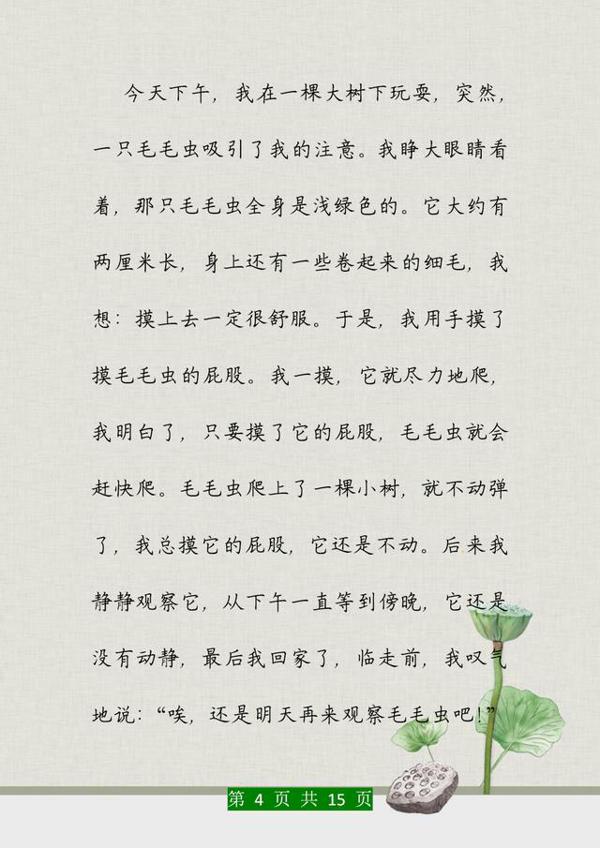 今天下午，我在一棵大树下玩耍，突然，
一只毛毛虫吸引了我的注意。我睁大眼睛看
着，那只毛毛虫全身是浅绿色的。它大约有
两厘米长，身上还有一些卷起来的细毛，我
想：摸上去一定很舒服。于是，我用手摸了
摸毛毛虫的屁股。我一摸，它就尽力地爬，
我明白了，只要摸了它的屁股，毛毛虫就会
赶快爬。毛毛虫爬上了一棵小树，就不动弹
了，我总摸它的屁股，它还是不动。后来我
静静观察它，从下午一直等到傍晚，它还是
没有动静，最后我回家了，临走前，我叹气
地说：“唉，还是明天再来观察毛毛虫吧！”
第 4 页 共 15 页